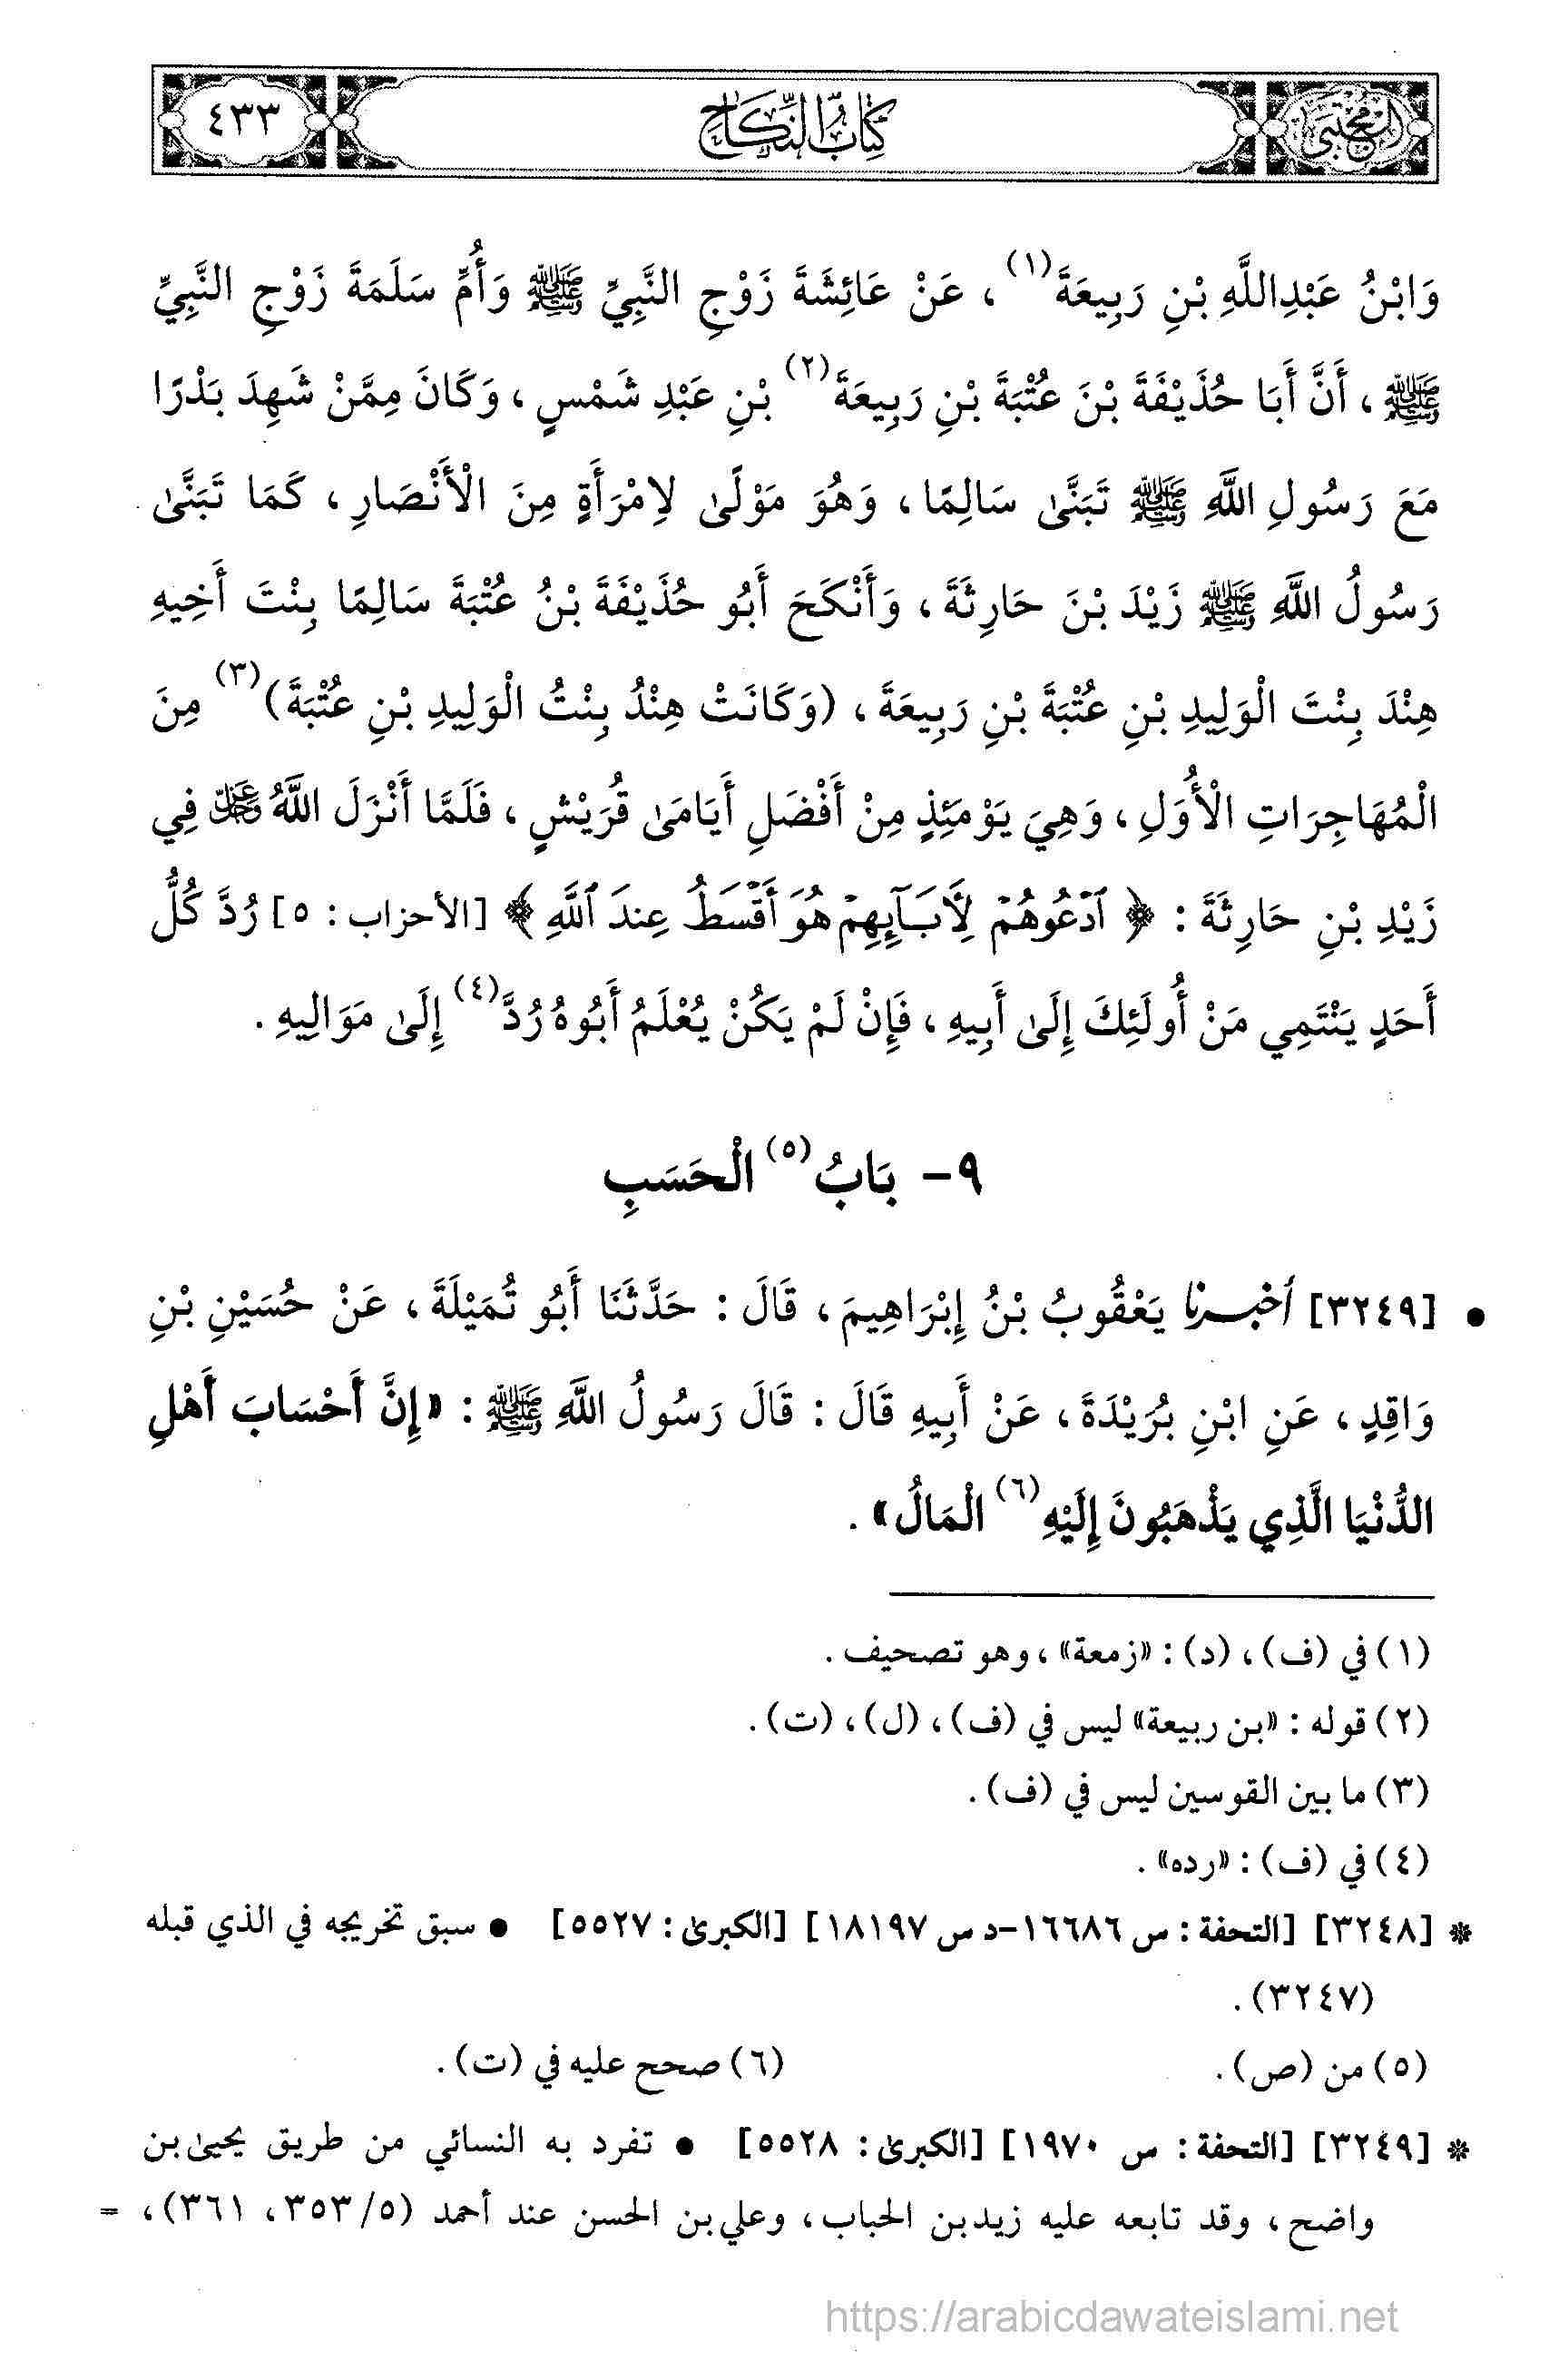 المجتبى
كتاب النكاح
٤٣٣
وَابْنُ عَبْدِاللَّهِ بْنِ رَبِيعَةَ(١)، عَنْ عَائِشَةَ زَوْجِ النَّبِيِّ ﷺ وَأُمِّ سَلَمَةَ زَوْجِ النَّبِيِّ
ﷺ، أَنَّ أَبَا حُذَيْفَةَ بْنَ عُتْبَةَ بْنِ رَبِيعَةَ(٢) بْنِ عَبْدِ شَمْسٍ، وَكَانَ مِمَّنْ شَهِدَ بَدْرًا
مَعَ رَسُولِ اللَّهِ ﷺ تَبَنَّىٰ سَالِمًا، وَهُوَ مَوْلًىٰ لِامْرَأَةٍ مِنَ الْأَنْصَارِ، كَمَا تَبَنَّىٰ
رَسُولُ اللَّهِ ﷺ زَيْدَ بْنَ حَارِثَةَ، وَأَنْكَحَ أَبُو حُذَيْفَةَ بْنُ عُتْبَةَ سَالِمًا بِنْتَ أَخِيهِ
هِنْدَ بِنْتَ الْوَلِيدِ بْنِ عُتْبَةَ بْنِ رَبِيعَةَ، (وَكَانَتْ هِنْدُ بِنْتُ الْوَلِيدِ بْنِ عُتْبَةَ)(٣) مِنَ
الْمُهَاجِرَاتِ الْأُوَلِ، وَهِيَ يَوْمَئِذٍ مِنْ أَفْضَلِ أَيَامَىٰ قُرَيْشٍ، فَلَمَّا أَنْزَلَ اللَّهُ ﷿ فِي
زَيْدِ بْنِ حَارِثَةَ: ﴿ٱدْعُوهُمْ لِأَبَآئِهِمْ هُوَ أَقْسَطُ عِندَ ٱللَّهِ﴾ [الأحزاب: ٥] رُدَّ كُلُّ
أَحَدٍ يَنْتَمِي مَنْ أُولَئِكَ إِلَىٰ أَبِيهِ، فَإِنْ لَمْ يَكُنْ يُعْلَمُ أَبُوهُ رُدَّ(٤) إِلَىٰ مَوَالِيهِ.
٩- بَابُ(٥) الْحَسَبِ
• [٣٢٤٩] أخبرنا يَعْقُوبُ بْنُ إِبْرَاهِيمَ، قَالَ: حَدَّثَنَا أَبُو تُمَيْلَةَ، عَنْ حُسَيْنِ بْنِ
وَاقِدٍ، عَنِ ابْنِ بُرَيْدَةَ، عَنْ أَبِيهِ قَالَ: قَالَ رَسُولُ اللَّهِ ﷺ: «إِنَّ أَحْسَابَ أَهْلِ
الدُّنْيَا الَّذِي يَذْهَبُونَ إِلَيْهِ(٦) الْمَالُ».
(١) في (ف)، (د): «زمعة»، وهو تصحيف.
(٢) قوله: «بن ربيعة» ليس في (ف)، (ل)، (ت).
(٣) ما بين القوسين ليس في (ف).
(٤) في (ف): «رده».
* [٣٢٤٨] [التحفة: س ١٦٦٨٦-د س ١٨١٩٧] [الكبرىٰ: ٥٥٢٧] • سبق تخريجه في الذي قبله
(٣٢٤٧).
(٥) من (ص). (٦) صحح عليه في (ت).
* [٣٢٤٩] [التحفة: س ١٩٧٠] [الكبرىٰ: ٥٥٢٨] • تفرد به النسائي من طريق يحيىٰ بن
واضح، وقد تابعه عليه زيد بن الحباب، وعلي بن الحسن عند أحمد (٥/ ٣٥٣، ٣٦١)، =
https://arabicdawateislami.net